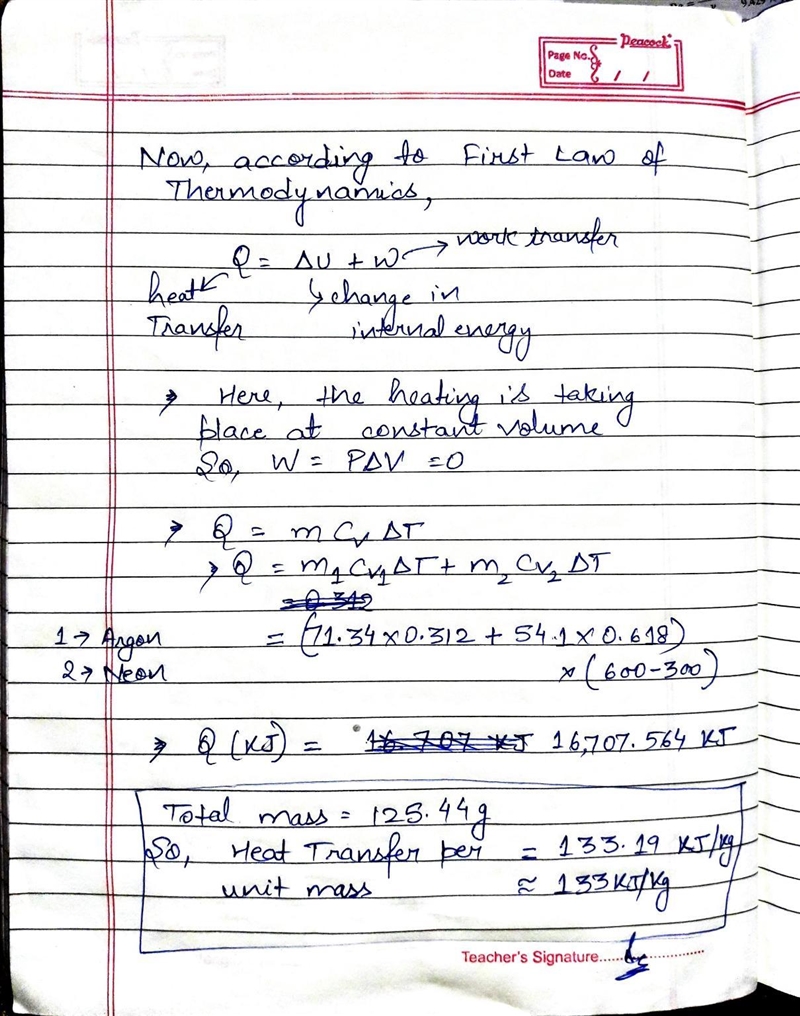 Peacock
Page No.
Date / /
Now, according to First Law of
Thermodynamics,
Q = ΔU + W → work transfer
heat ↳ change in
Transfer internal energy
→ Here, the heating is taking
place at constant volume
So, W = PΔV = 0
→ Q = m Cv ΔT
→ Q = m1 Cv1 ΔT + m2 Cv2 ΔT
= 0.312
1 → Argon = (71.34 × 0.312 + 54.1 × 0.618)
2 → Neon × (600-300)
→ Q (KJ) = 16.707 KJ 16,707.564 KJ
Total mass = 125.44g
So, Heat Transfer per = 133.19 KJ/kg
unit mass ≈ 133 KJ/Kg
Teacher's Signature